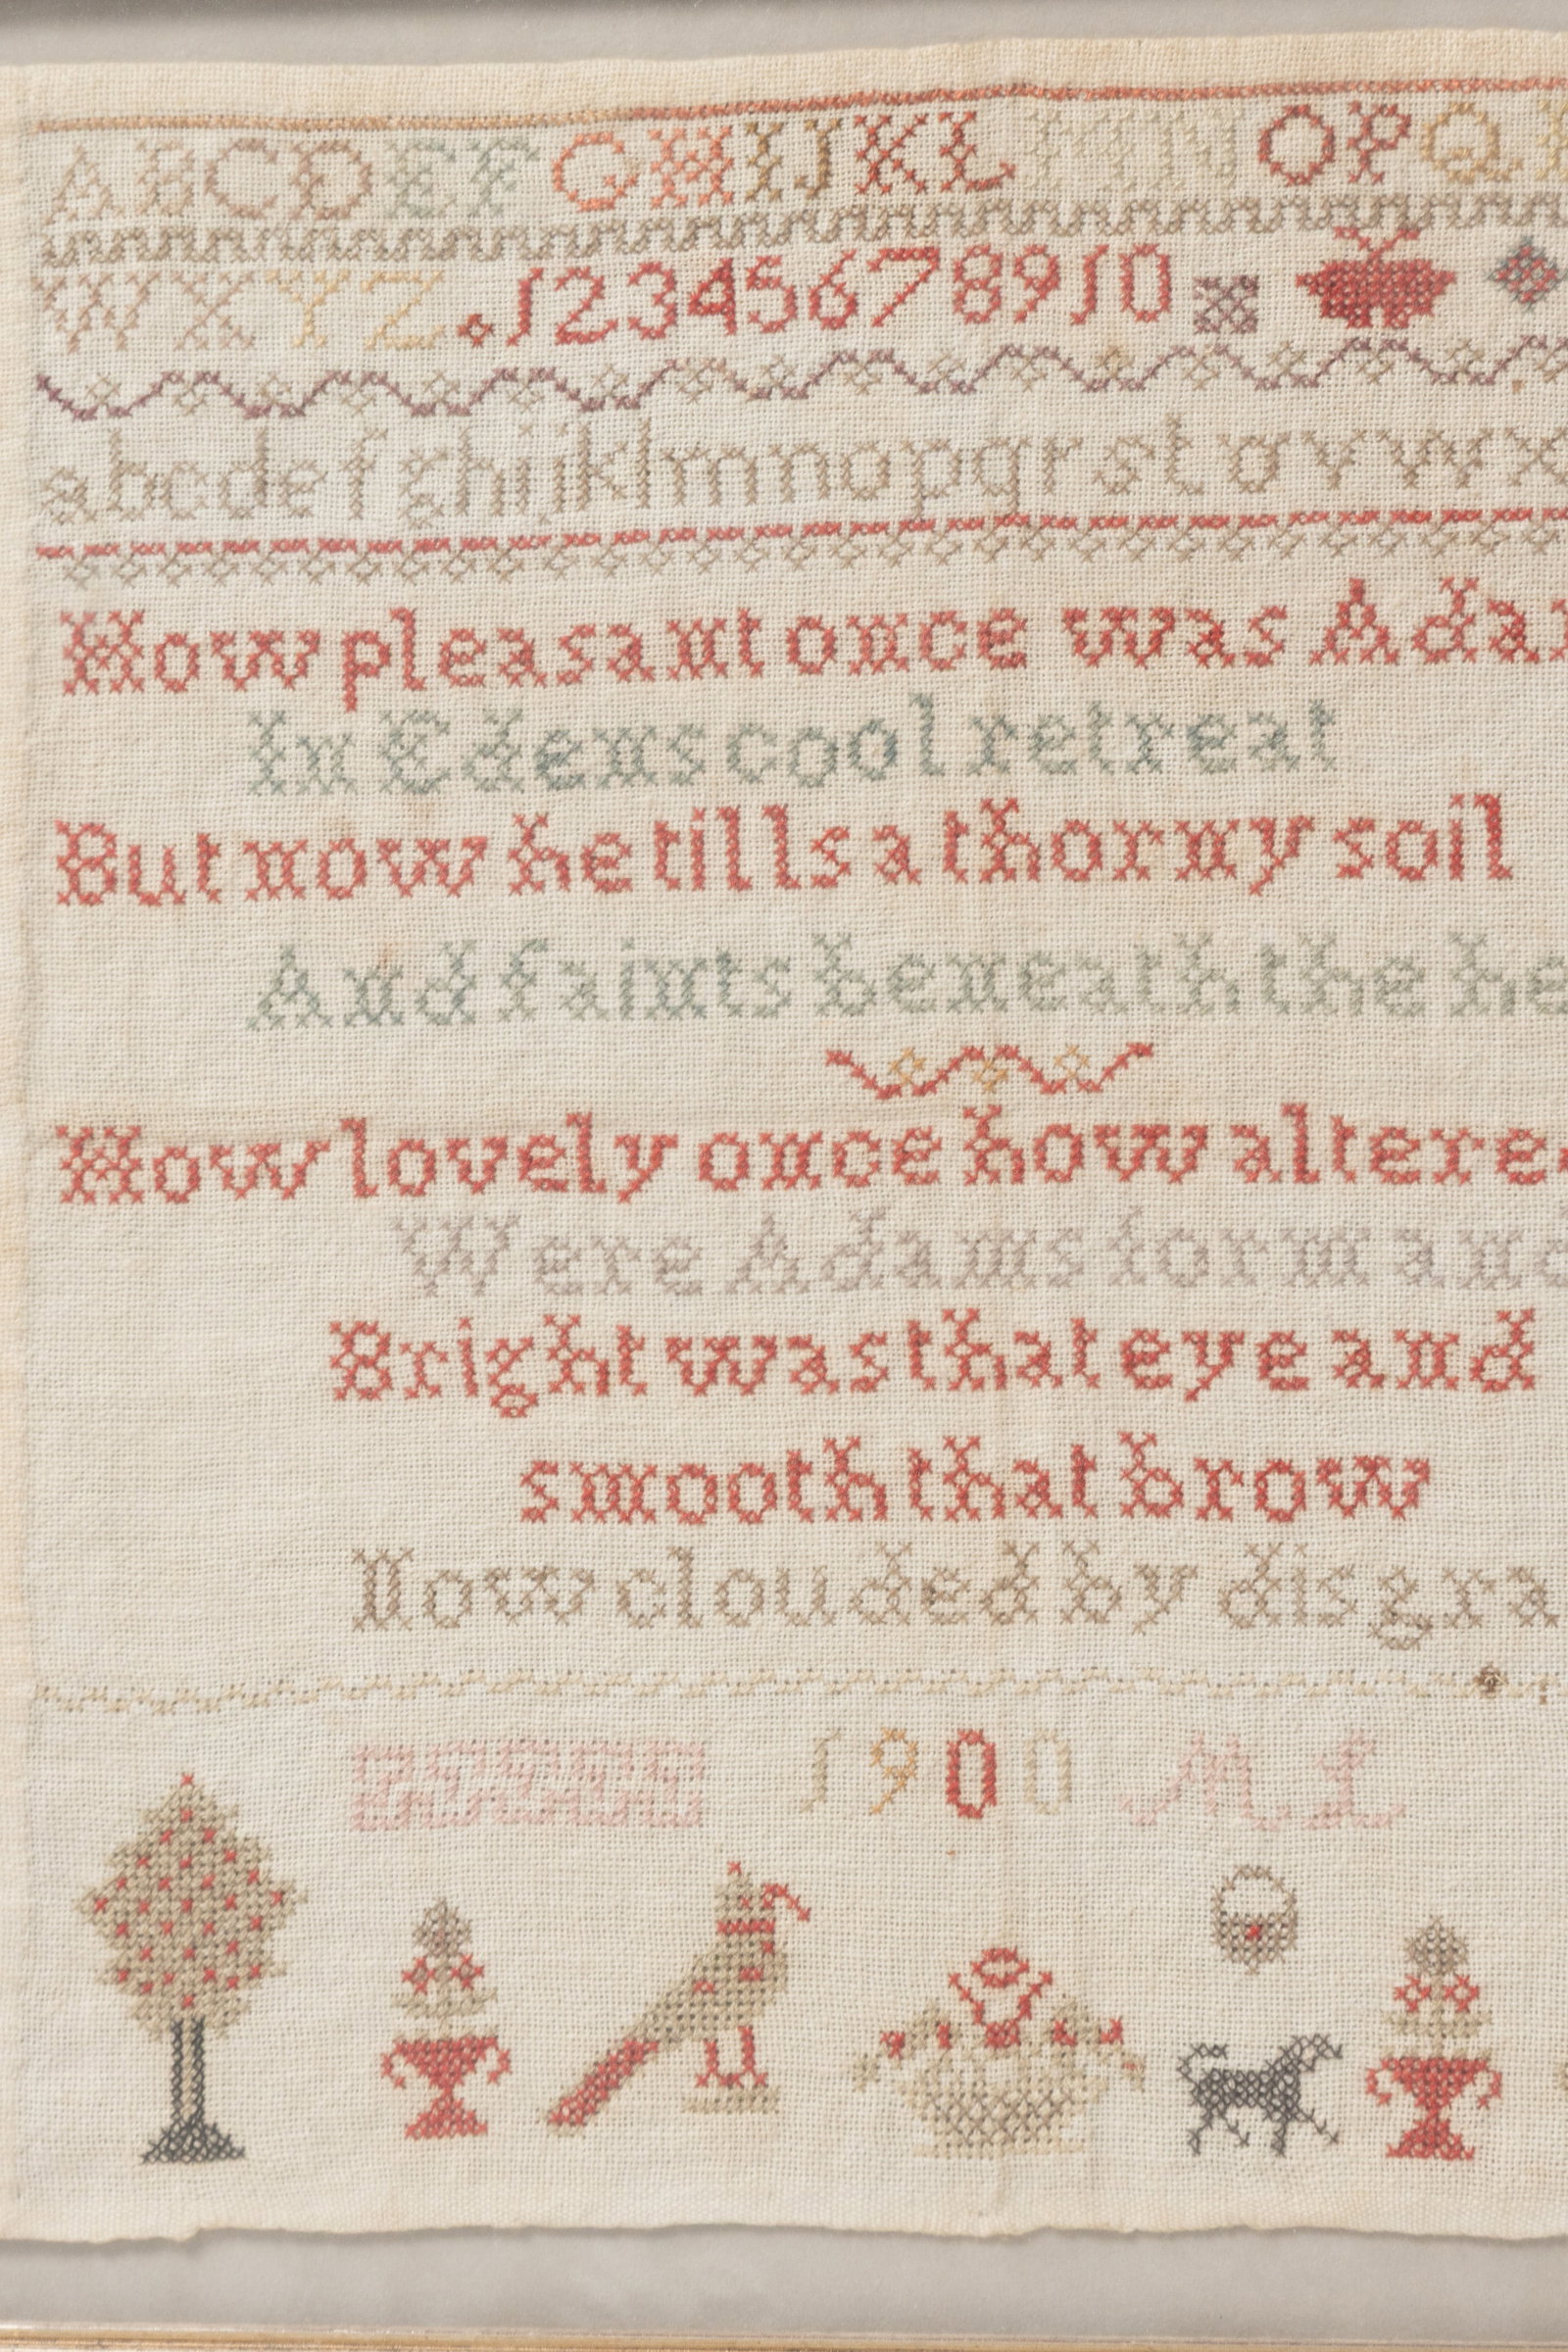 A B C D E F G H I J K L M N O P Q
W X Y Z 1 2 3 4 5 6 7 8 9 10
a b c d e f g h i j k l m n o p q r s t u v w x
How pleasant once was Ada
In Edens cool retreat
But now he tills a thorny soil
And faints beneath the he
How lovely once how altere
Were Adams form and
Bright was that eye and
smooth that brow
Now clouded by disgra
1900 M L